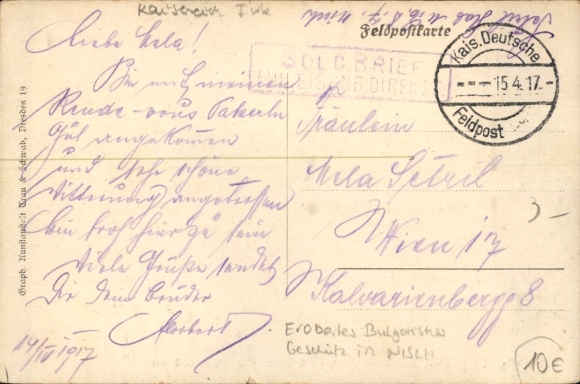 Feldpostkarte
Liebe Mela!
Bin mit meinem
Rende-vous Pakerln
Gut angekommen
und sehr schöne
Witterung angetroffen
bin froh hier zu sein
Viele Grüße sendet
Dir dein Bruder
Norbert
14/IV 1917
SOLDBRIEF
Kais. Deutsche
15.4.17.
Feldpost
Fräulein
Mela Petril
Wien 17
Kalvarienbergg 8
3-
Erobertes Bulgarisches
Geschütz in NISCH
10€
Graph. Kunstanstalt Trau & Schwab, Dresden 19